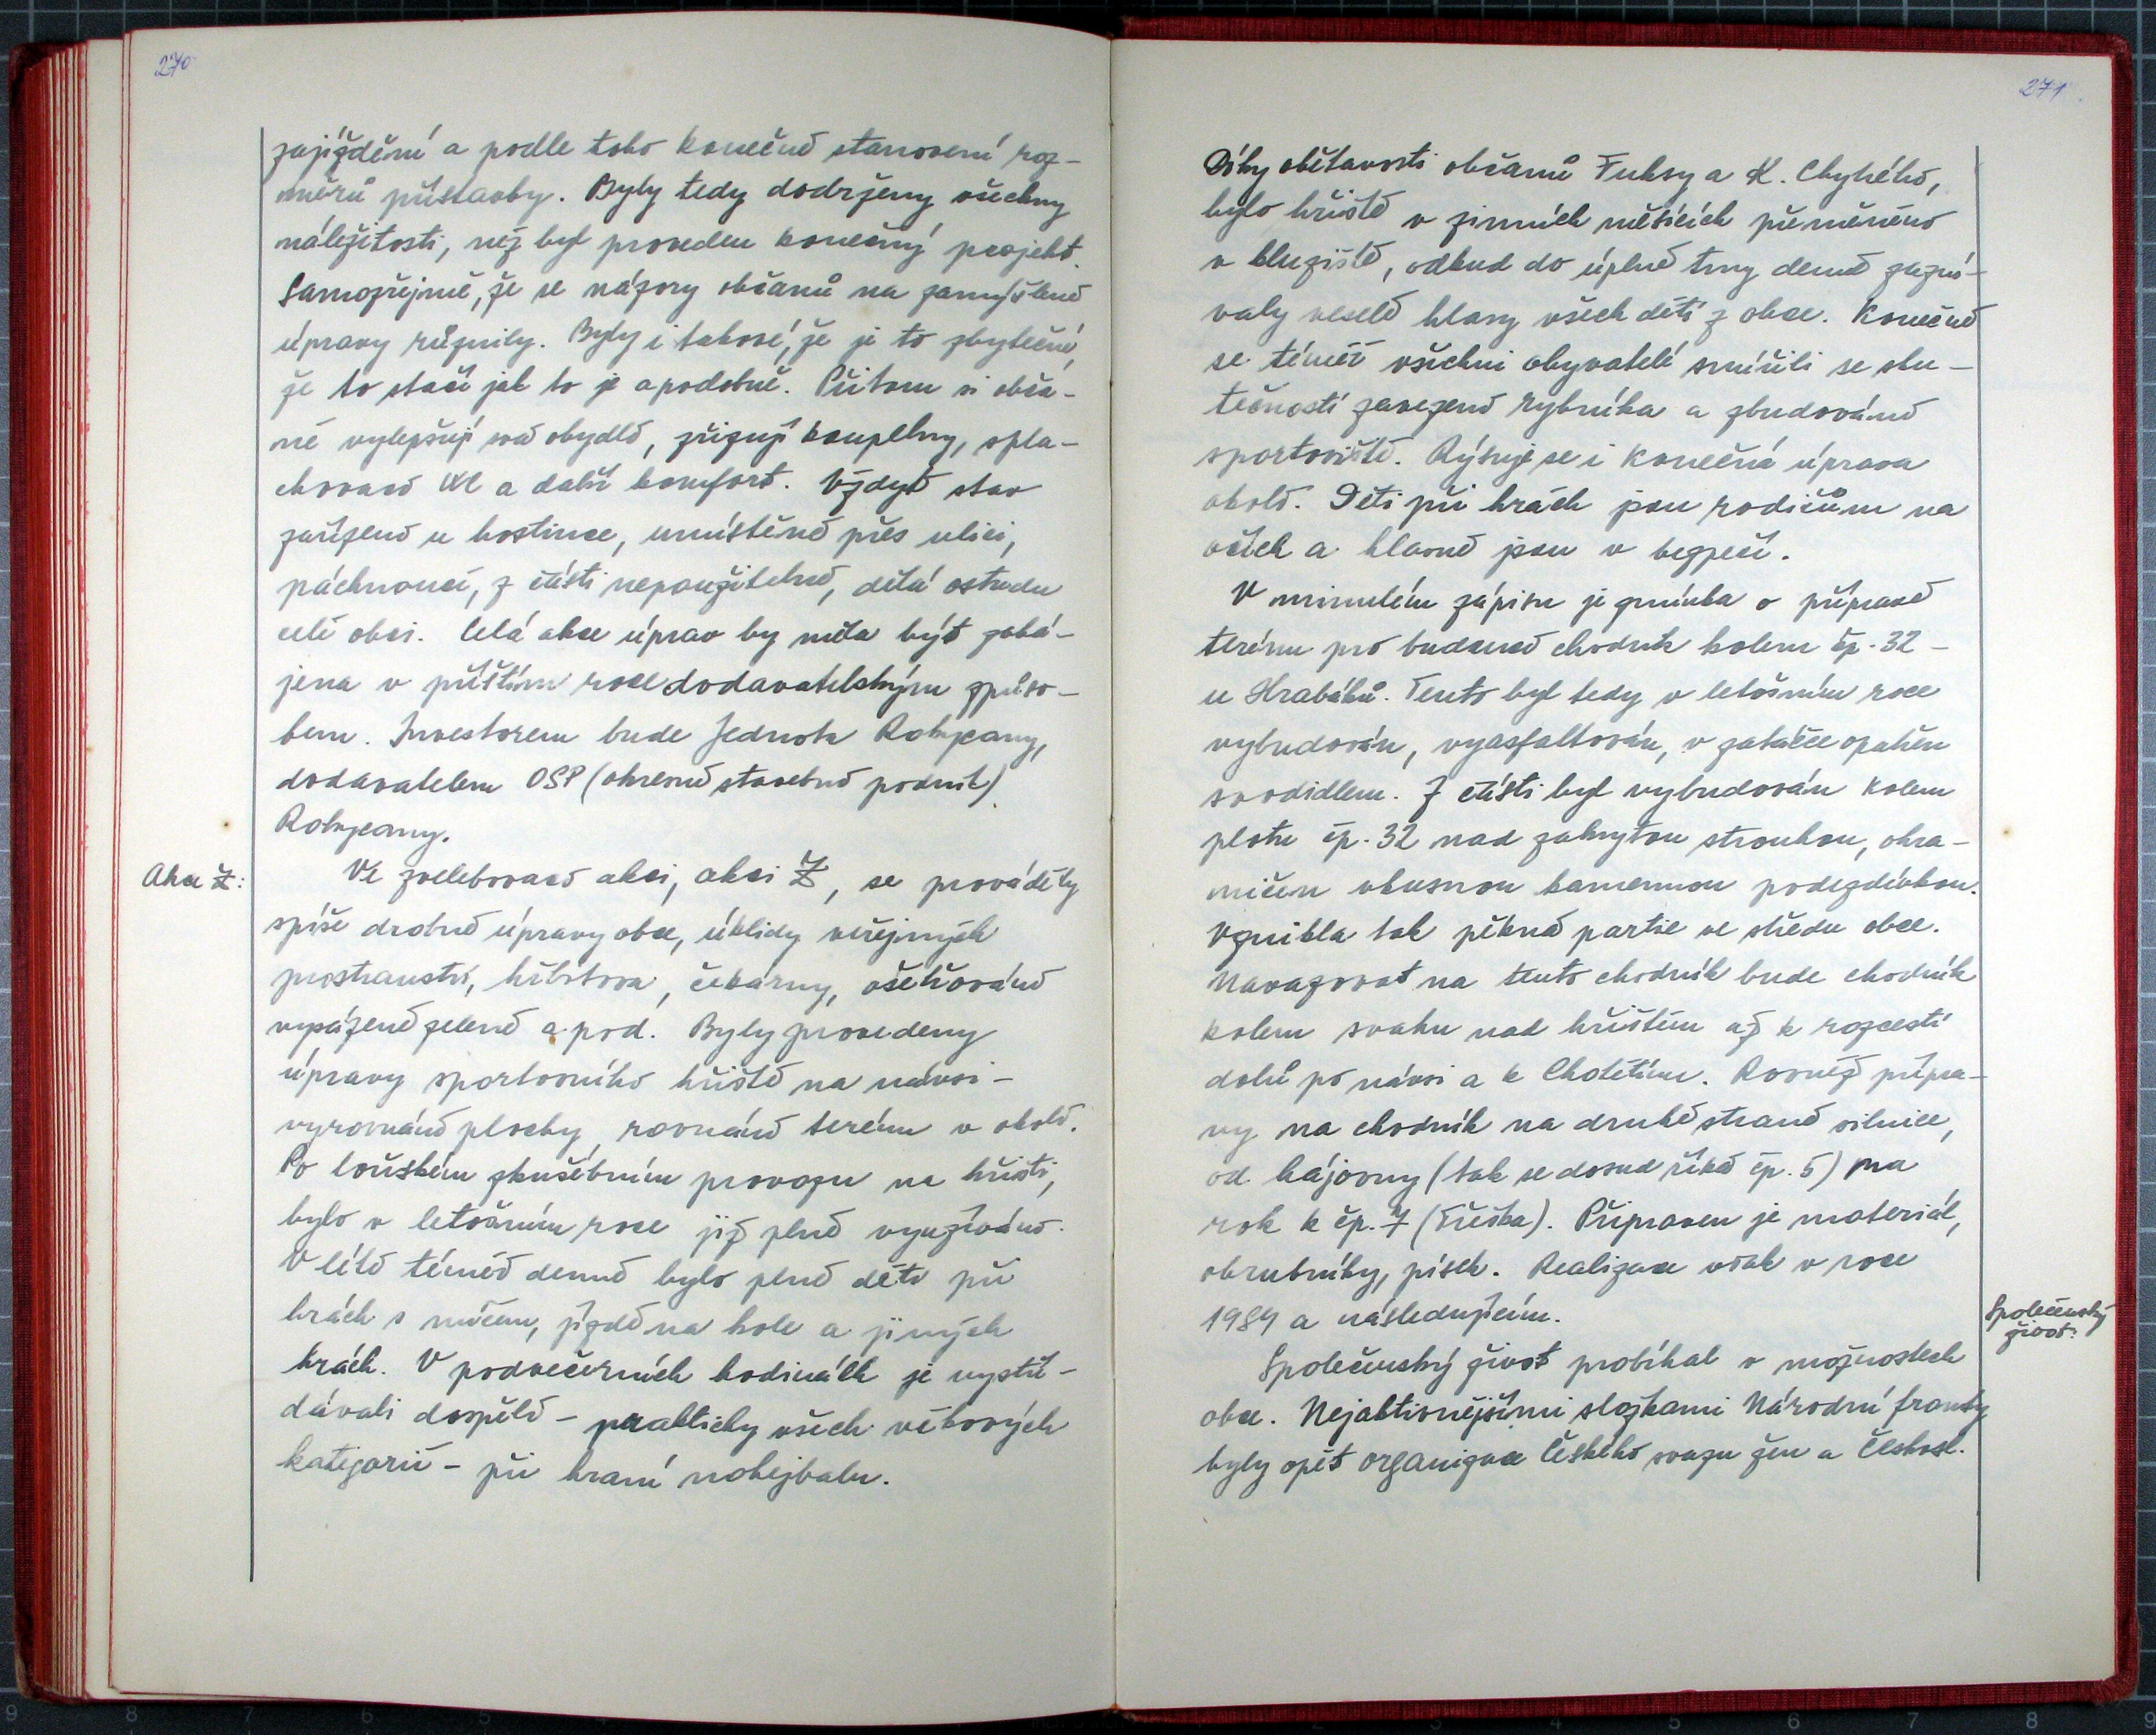 270
zajíždění a podle toho konečné stanovení roz-
měrů přístavby. Byly tedy dodrženy všechny
náležitosti, než byl proveden konečný projekt.
Samozřejmě, že se názory občanů na zamýšlené
úpravy různily. Byly i takové, že je to zbytečné,
že to stačí jak to je a podobně. Přitom si obča-
né vylepšují svá obydlí, zřizují koupelny, spla-
chovací WC a další komfort. Vždyť stav
zařízení u hostince, umístěné přes ulici,
páchnoucí, z části nepoužitelné, dělá ostudu
celé obci. Celá akce úprav by měla být zahá-
jena v příštím roce dodavatelským způso-
bem. Investorem bude Jednota Rokycany,
dodavatelem OSP (okresní stavební podnik)
Rokycany.
Akce Z:
Ve zvelebovací akci, akci Z, se prováděly
spíše drobné úpravy obce, úklidy veřejných
prostranství, hřbitova, čekárny, ošetřování
vysázené zeleně a pod. Byly provedeny
úpravy sportovního hřiště na návsi -
vyrovnání plochy, rovnání terénu v okolí.
Po loňském zkušebním provozu na hřišti,
bylo v letošním roce již plně využíváno.
V létě téměř denně bylo plné dětí při
hrách s míčem, jízdě na kole a jiných
hrách. V podvečerních hodinách je vystří-
dávali dospělí - prakticky všech věkových
kategorií - při hraní nohejbalu.
271
Díky obětavosti občanů Fuksy a K. Chyhého,
bylo hřiště v zimních měsících přeměněno
v kluziště, odkud do úplné tmy denně zazní-
valy veselé hlasy všech dětí z obce. Konečně
se téměř všichni obyvatelé smířili se sku-
tečností zavezení rybníka a zbudování
sportoviště. Rýsuje se i konečná úprava
okolí. Děti při hrách jsou rodičům na
očích a hlavně jsou v bezpečí.
V minulém zápisu je zmínka o přípravě
terénu pro budoucí chodník kolem čp. 32 -
u Hrabáků. Tento byl tedy v letošním roce
vybudován, vyasfaltován, v zatáčce opatřen
svodidlem. Z části byl vybudován kolem
plotu čp. 32 nad zakrytou stroukou, ohra-
ničen vkusnou kamennou podezdívkou.
Vznikla tak pěkná partie ve středu obce.
Navazovat na tento chodník bude chodník
kolem svahu nad hřištěm až k rozcestí
dolů po návsi a k Chotětínu. Rovněž přípra-
vy na chodník na druhé straně silnice,
od hájovny (tak se dosud říká čp. 5) na
rok k čp. 7 (Tříška). Připraven je materiál,
obrubníky, písek. Realizace však v roce
1984 a následujícím.
Společenský
život:
Společenský život probíhal v možnostech
obce. Nejaktivnějšími složkami Národní fronty
byly opět organizace Českého svazu žen a Českosl.